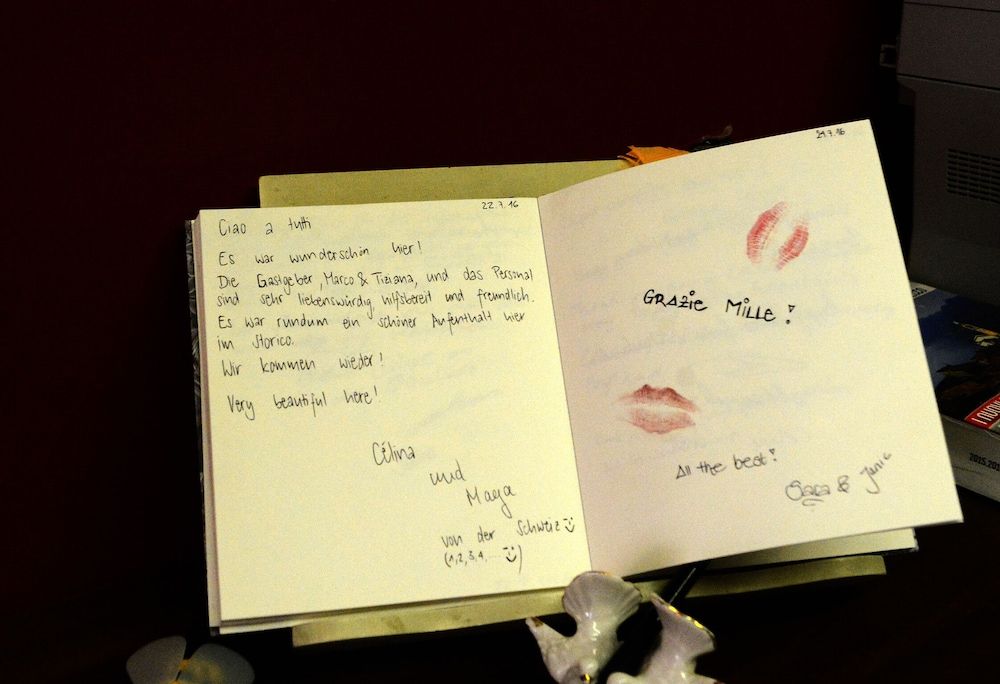 22.7.16
Ciao a tutti
Es war wunderschön hier!
Die Gastgeber, Marco & Tiziana, und das Personal
sind sehr liebenswürdig hilfsbereit und freundlich.
Es war rundum ein schöner Aufenthalt hier
im Storico.
Wir kommen wieder!
Very beautiful here!
Célina
und
Maya
von der Schweiz
(1,2,3,4,...)
29.7.16
GRAZIE MILLE!
All the best!
Sara & Janic
2015.201